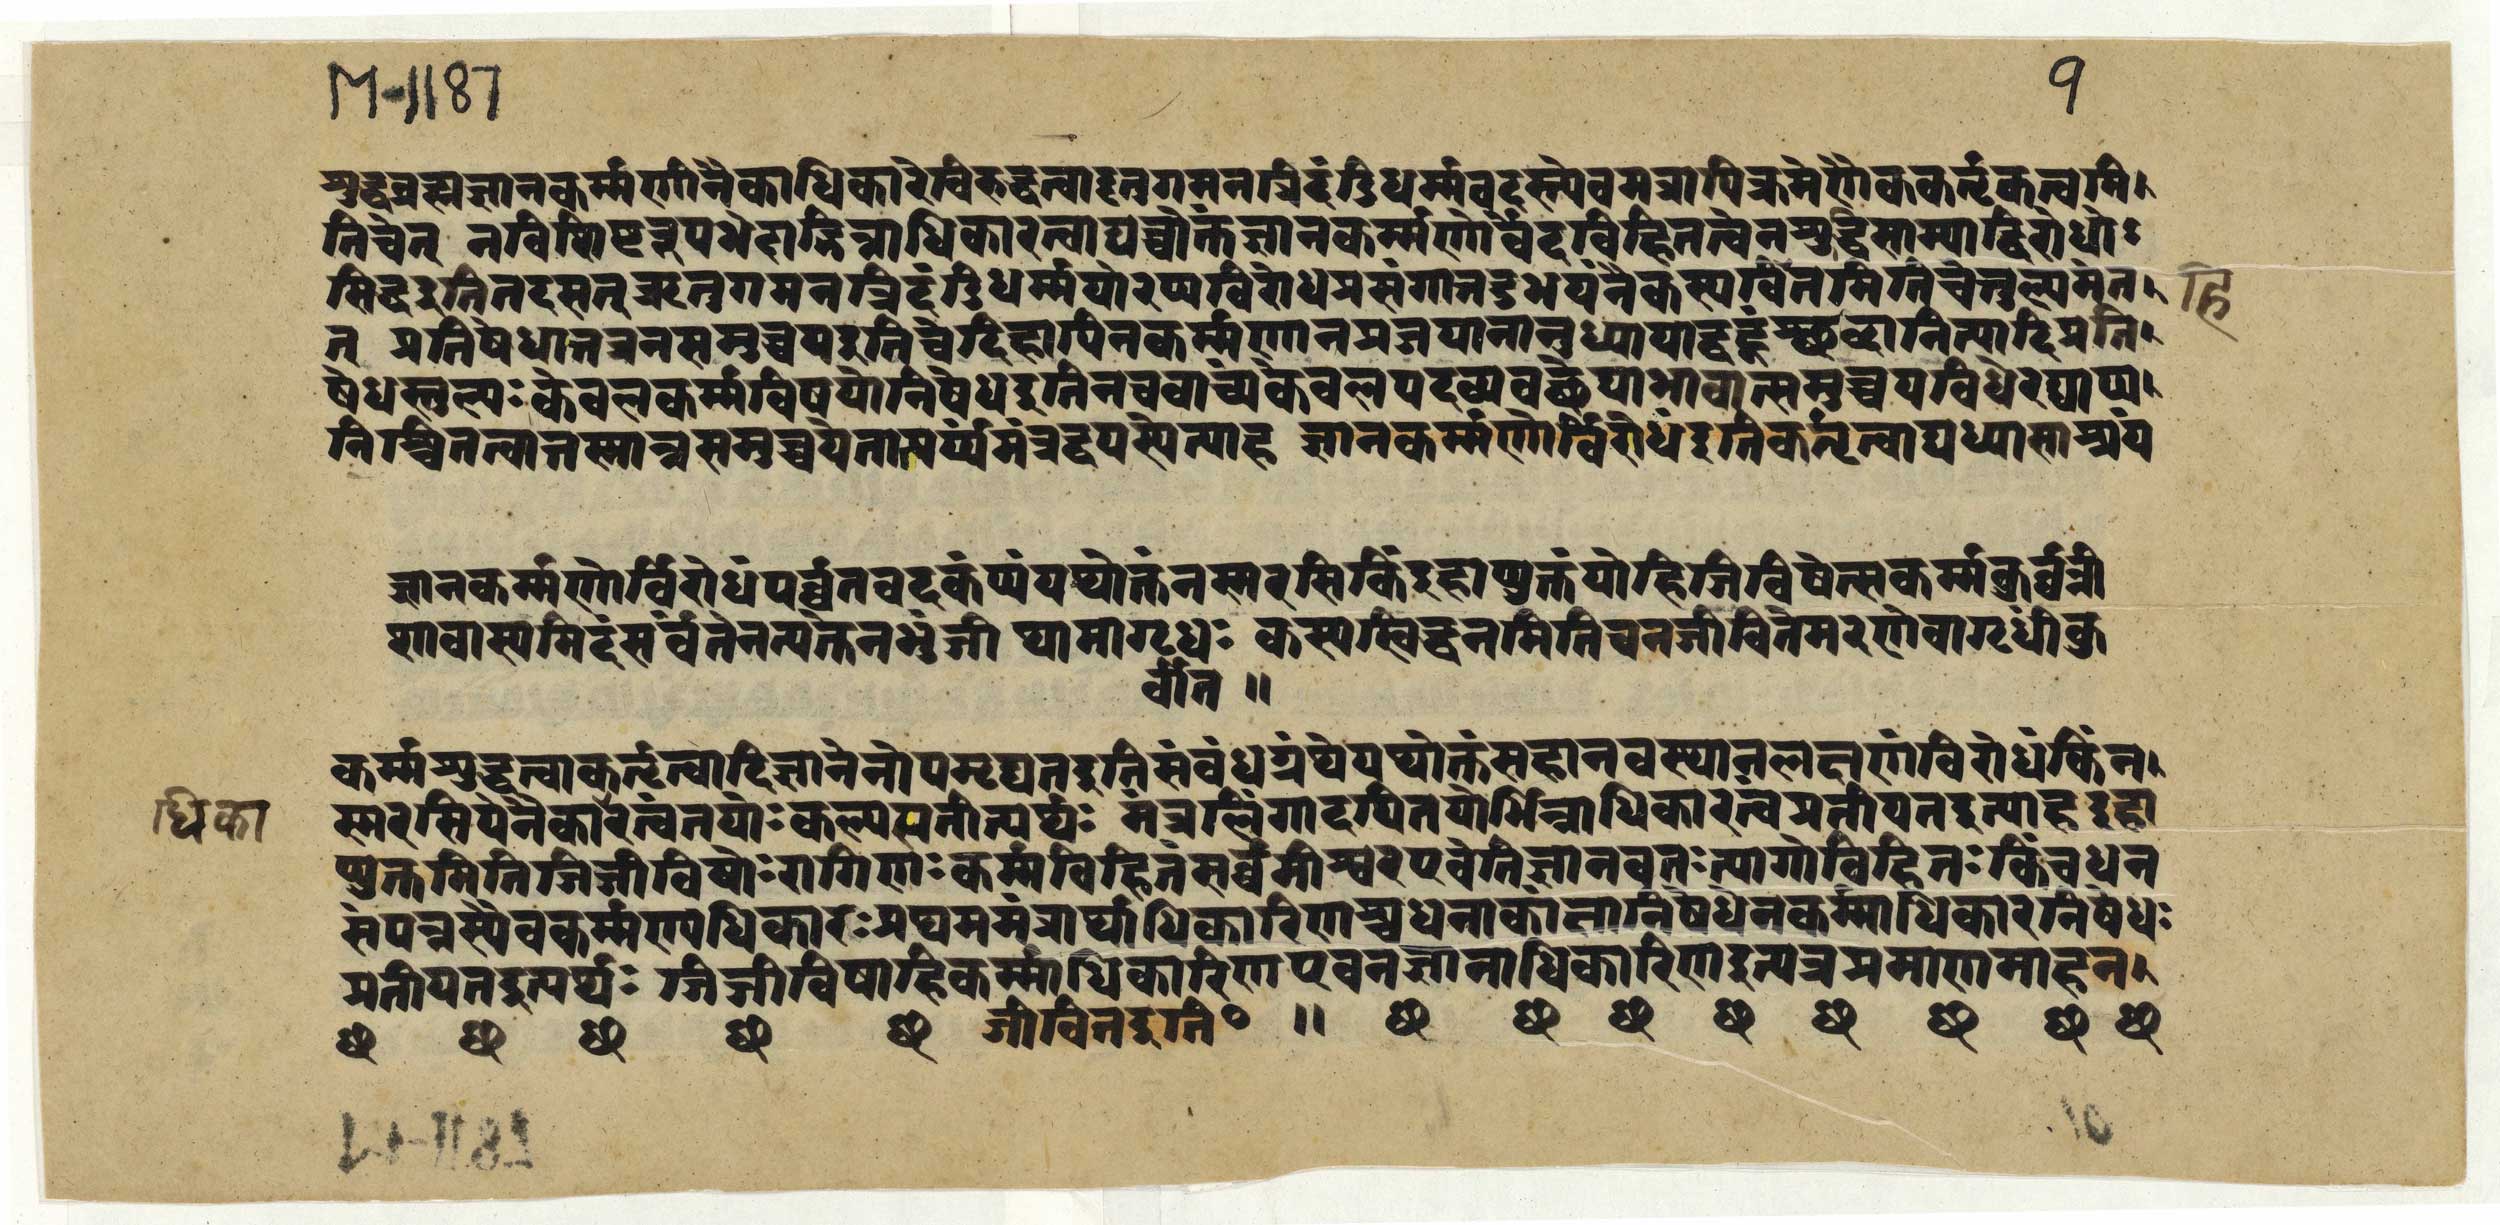 M-1187
9
शुद्धब्रह्मज्ञानकर्म्मणोर्नैकाधिकारेविरुद्धत्वादृतुगमनत्रिदंडिधर्म्मवदस्त्येवमत्रापिक्रमेणैककर्तृकत्वमि।
तिचेत् नविशिष्टरूपभेदाद्भिन्नाधिकारत्वाद्यच्चोक्तंज्ञानकर्म्मणोर्वेदविहितत्वेनशुद्धिसाम्याद्विरोधोः
सिद्धइतितदसत् ऋतुगमनत्रिदंडिधर्म्मयोरप्यविरोधप्रसंगात्तदुभयंनैकस्यविहितमितिचेत्तुल्यमेत।
हि
त् प्रतिषेधात्तत्रनसमुच्चयइतिचेदिहापिनकर्म्मणानप्रजयानानुध्यायाद्बहूंश्छब्दानित्यादिप्रति।
षेधस्तुल्यःकेवलकर्म्मविषयोनिषेधइतिनचवाच्यंकेवलपदव्यवच्छेद्याभावात्समुच्चयविधेरद्याप्य।
निश्चितत्वात्तस्मान्नसमुच्चयेतात्पर्य्यंमंत्रद्वयस्येत्याह ज्ञानकर्म्मणोर्विरोधंइतिकर्तृत्वाद्यध्यासाश्रयं
ज्ञानकर्म्मणोर्विरोधंपर्व्वतवदकंप्यंयथोक्तंनस्मरसिकिंइहाप्युक्तंयोहिजिजीविषेत्सकर्म्मकुर्व्वन्नी
शावास्यमिदंसर्वंतेनत्यक्तेनभुंजीथामागृधः कस्यस्विद्धनमितिचनजीवितेमरणेवागृधींकु
र्वीत ॥
कर्म्मशुद्धत्वाकर्तृत्वादिज्ञानेनोपमृद्यतइतिसंबंधग्रंथेयथोक्तंसहानवस्थानलक्षणंविरोधंकिंन।
धिका
स्मरसियेनैकारत्वंतयोःकल्पयसीत्यर्थः मंत्रलिंगादपितयोर्भिन्नाधिकारत्वंप्रतीयतइत्याहइहा
प्युक्तमितिजिजीविषोःरागिणःकर्म्मविहितंसर्व्वमीश्वरएवेतिज्ञानवतःत्यागोविहितःकिंचधन
संपन्नस्यैवकर्म्मण्यधिकारःप्रथममंत्रार्थाधिकारिणश्चधनाकांक्षानिषेधेनकर्म्माधिकारनिषेधः
प्रतीयतइत्यर्थः जिजीविषाहिकर्म्माधिकारिणएवनज्ञानाधिकारिणइत्यत्रप्रमाणमाहन।
जीवितइति॰ ॥